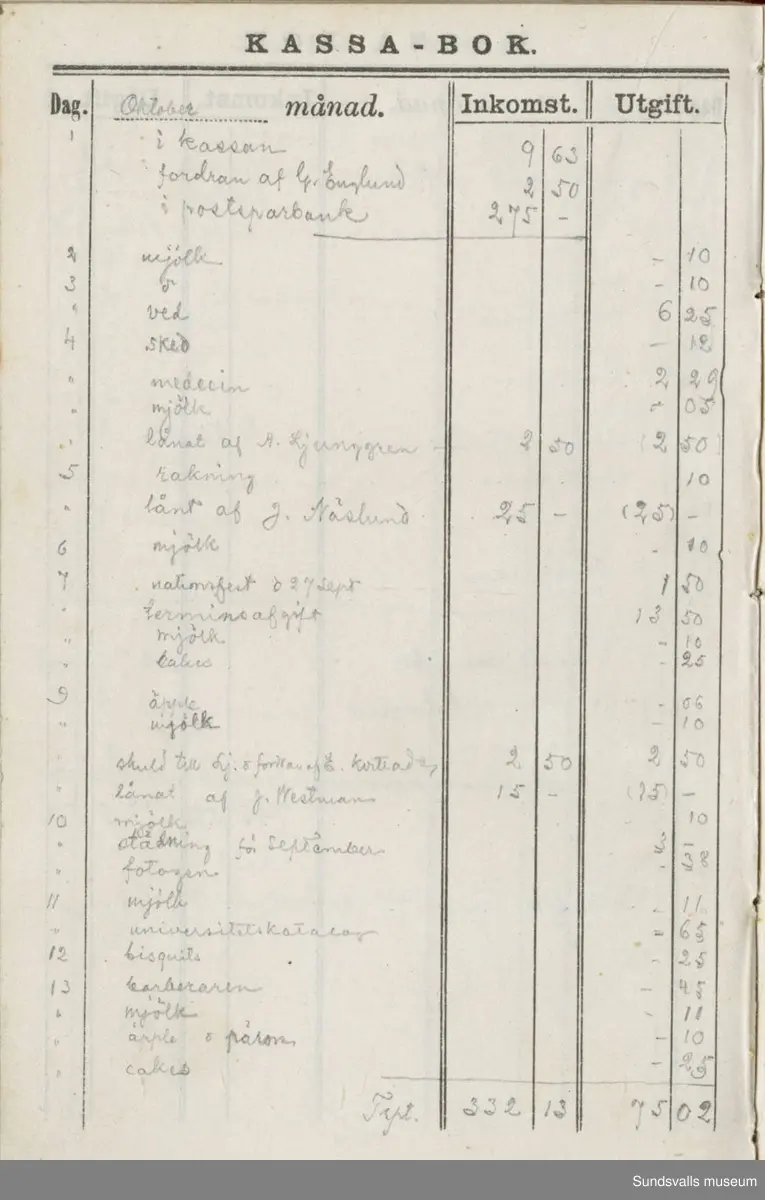 KASSA-BOK.
Dag. Oktober månad. Inkomst. Utgift.
1 i kassan 9 63
fordran af G. Englund 2 50
i postsparbank 275 -
2 mjölk - 10
3 " - 10
" ved 6 25
4 sked - 12
" medecin 2 29
" mjölk - 05
" lånat af A. Ljunggren - 2 50 (2 50)
5 rakning 10
" lånt af J. Näslund 25 - (25) -
6 mjölk - 10
7 nationsfest d 27 sept 1 50
" terminsafgift 13 50
" mjölk - 10
" cakes - 25
9 äpple - 06
" mjölk - 10
" skuld till Lj. o fordran af E. 2 50 2 50
" lånat af J. Westman 15 - (15) -
10 mjölk 10
" städning för September 3 -
" fotogen - 38
11 mjölk - 11
" universitetskatalog " 65
12 bisquits - 25
13 barberaren - 45
" mjölk - 11
" äpple o päron - 10
" cakes - 25
Tspt. 332 13 75 02
Sundsvalls museum